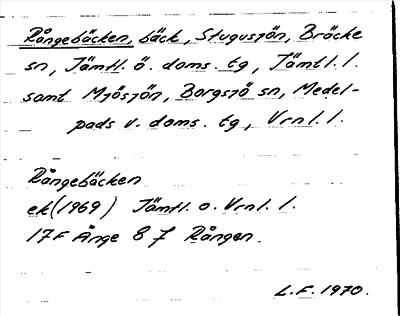 Rångebäcken, bäck, Stugusjön, Bräcke
sn, Jämtl. ö. doms. tg, Jämtl. l.
samt Mjösjön, Borgsjö sn, Medel-
pads v. doms. tg, Vrnl. l.
Rångebäcken
ek (1969) Jämtl. o. Vrnl. l.
17F Ånge 8 f Rången.
L.F. 1970.